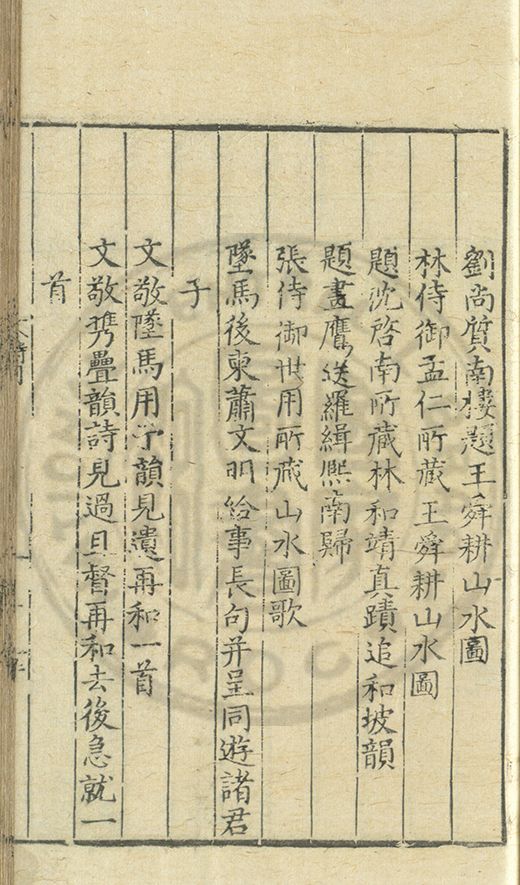 劉尚質南樓題王舜耕山水圖
林侍御孟仁所藏王舜耕山水圖
題沈啓南所藏林和靖真蹟追和坡韻
題畫鷹送羅緝熙南歸
張侍御世用所藏山水圖歌
墜馬後柬蕭文明給事長句并呈同遊諸君
子
文敬墜馬用予韻見遺再和一首
文敬㩗疊韻詩見過且督再和去後急就一
首